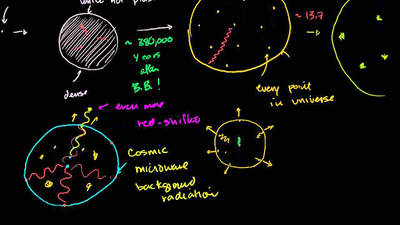 ~ 380,000
years
after
B.B.!
~ 13.7
dense
every point
in universe
even more
red-shifted
cosmic
microwave
background
radiation